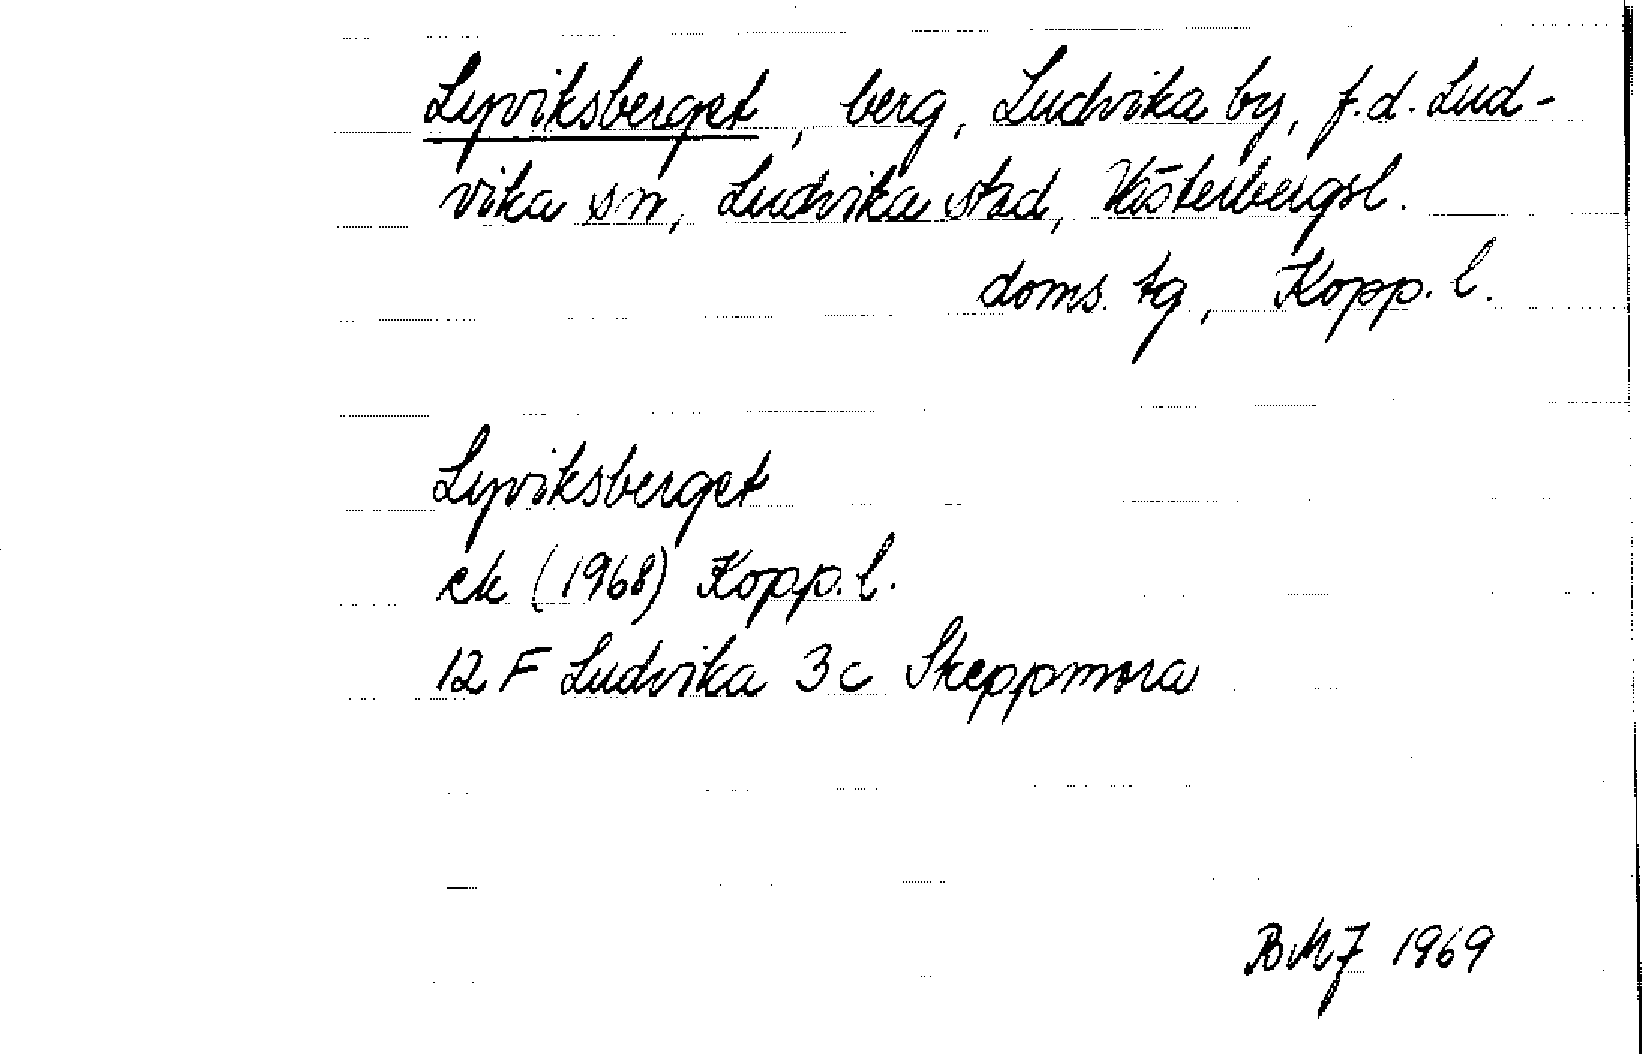 Lyviksberget, berg, Ludvika by, f.d. Lud-
vika sn, Ludvika stad, Västerbergsl.
doms. tg, Kopp. l.
Lyviksberget
ek (1968) Kopp. l.
12 F Ludvika 3c Skeppmora
BMJ 1969